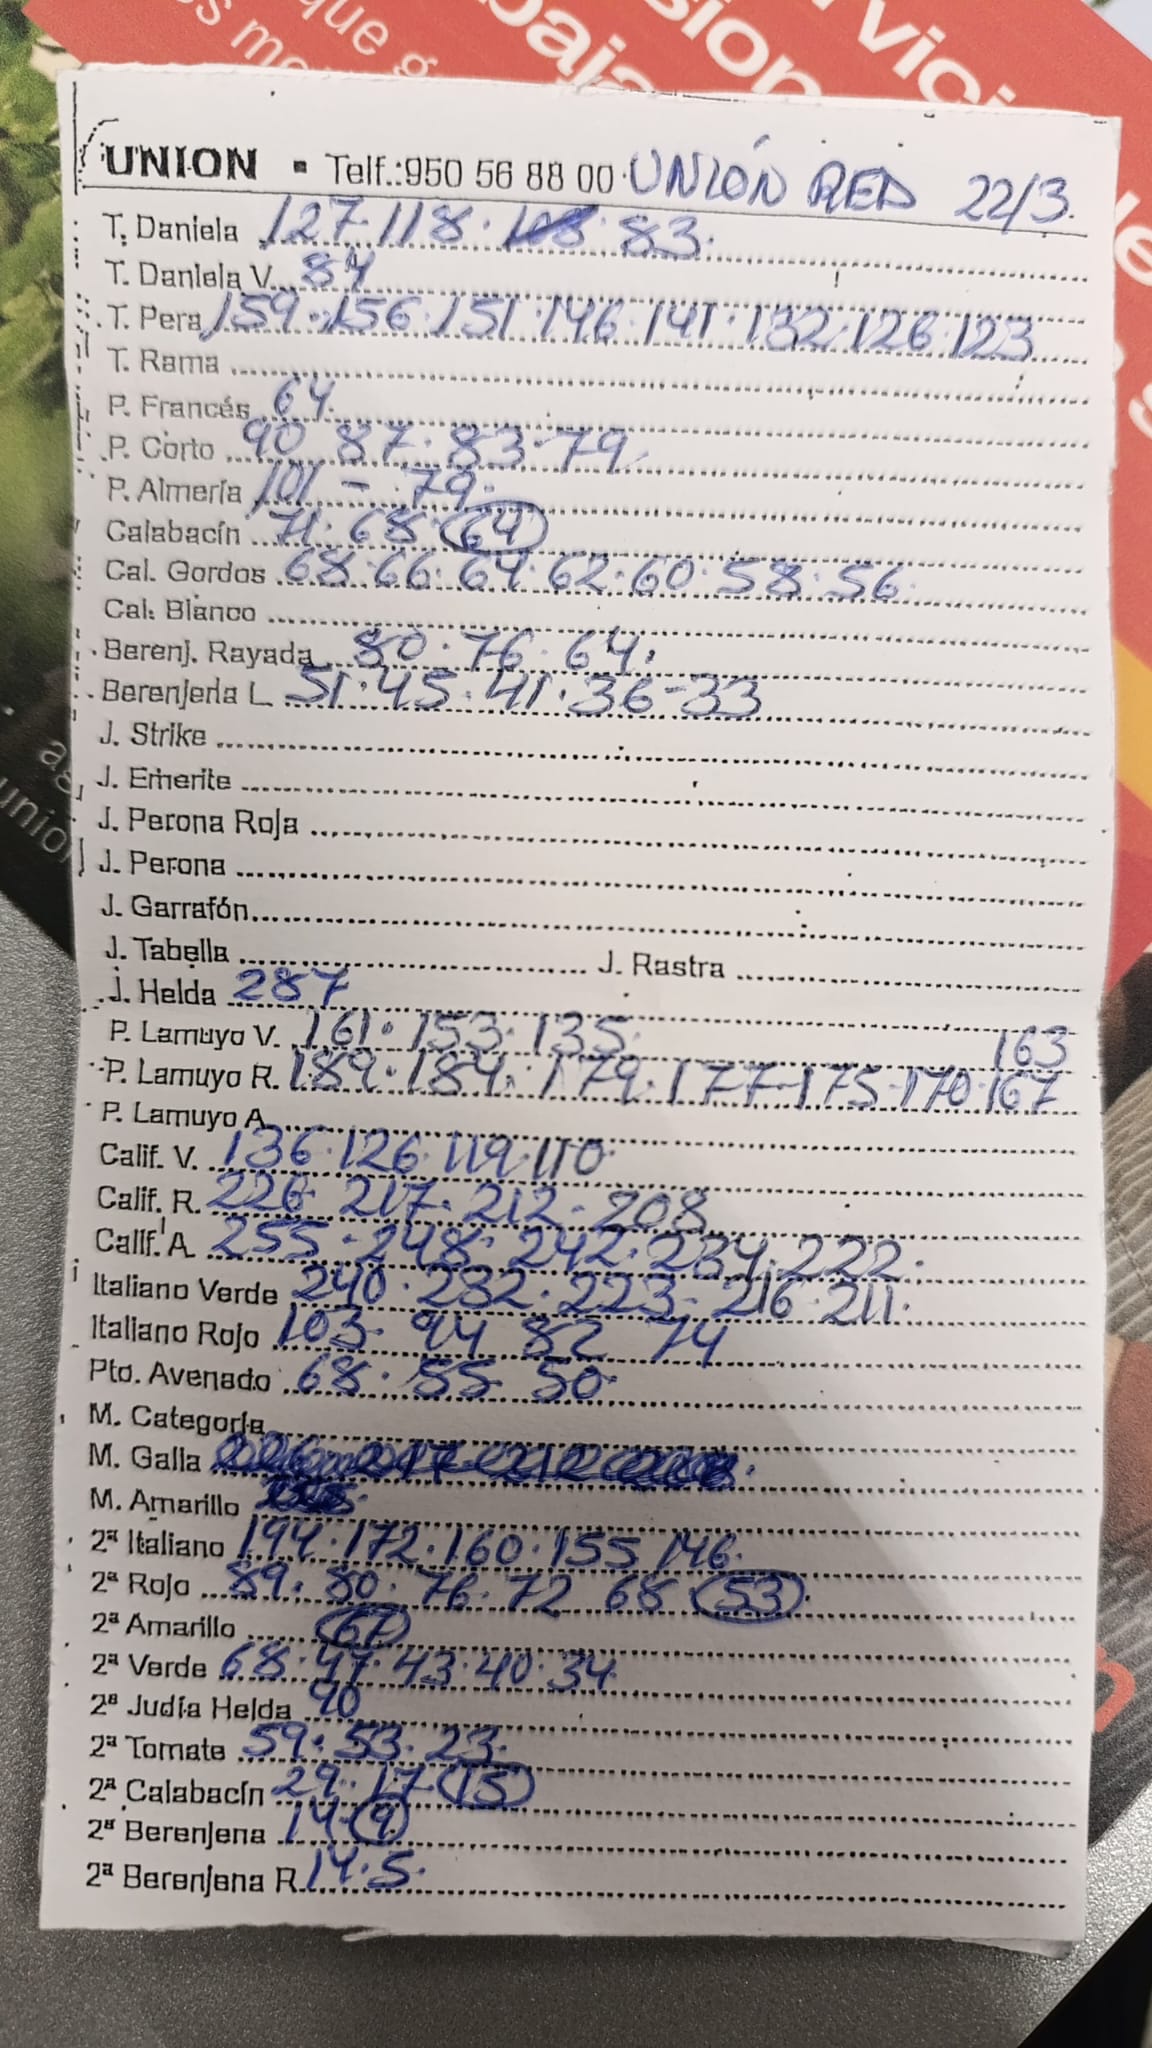 que g
sion
rvici
os me
baja
UNION - Telf.:950 56 88 00 · UNIÓN RED 22/3.
T. Daniela 127·118· 83·
T. Daniela V. 84
T. Pera 159·156·151·146·141·132·126·123
T. Rama
P. Francés 64
P. Corto 90 87·83·79
P. Almería 101 - 79·
Calabacín 71·68·64
Cal. Gordos 68·66·64·62·60·58·56·
Cal. Blanco
Berenj. Rayada 80·76·64·
Berenjena L 51·45·41·36-33
J. Strike
J. Emerite
J. Perona Roja
J. Perona
J. Garrafón
J. Tabella J. Rastra
J. Helda 287
P. Lamuyo V. 161·153·135· 163
P. Lamuyo R. 189·184·179·177-175-170·167
P. Lamuyo A
Calif. V. 136·126·119·110·
Calif. R. 226·217·212·208
Calif. A. 255·248·242·234·222·
Italiano Verde 240·232·223·216·211·
Italiano Rojo 103· 94 82 74
Pto. Avenado 68·55·50·
M. Categoría
M. Galla
M. Amarillo
2ª Italiano 194·172·160·155 146·
2ª Rojo 89·80·76·72 68 53
2ª Amarillo 67
2ª Verde 68·47·43·40·34
2ª Judía Helda 90
2ª Tomate 59·53·23·
2ª Calabacín 29·17·15
2ª Berenjena 14·9
2ª Berenjena R 14·5·